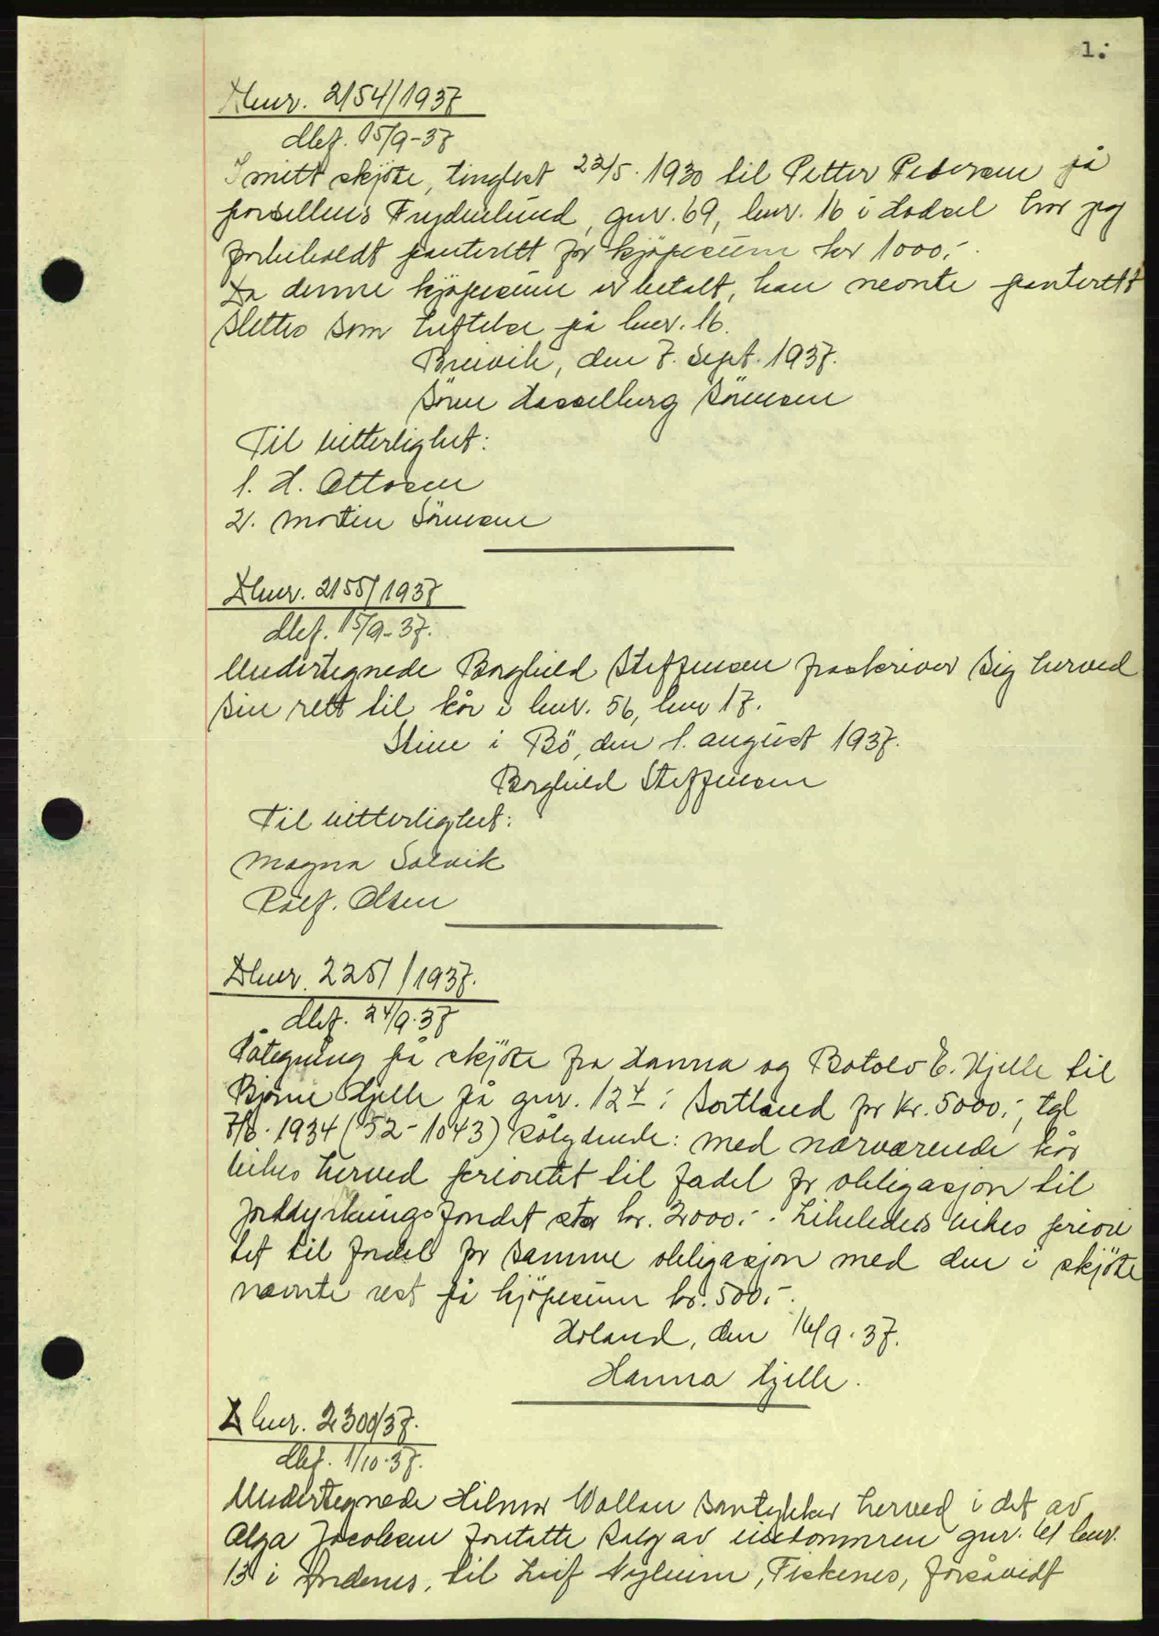 1.
Dbnr. 2154/1937
dbf. 15/9-37
I mitt skjöte, tinglest 23/5.1930 til Petter Pedersen på
parsellen Frydenlund, gnr. 69, bnr. 16 i Hadsel har jeg
forbeholdt panterett for kjöpesum kr 1000,-.
Da denne kjöpesum er betalt, kan nevnte panterett
slettes som heftelse på bnr. 16.
Breivik, den 7. Sept. 1937.
Sören Hasselberg Sörensen
Til vitterlighet:
1. H. Ottosen
2. Martin Sörensen
Dbnr. 2155/1937
dbf. 15/9-37.
Undertegnede Borghild Steffensen fraskriver sig herved
sin rett til kår i bnr. 56, bnr 17.
Steine i Bö, den 1. august 1937.
Borghild Steffensen
Til vitterlighet:
Magna Solvik
Rolf. Olsen
Dbnr. 2251/1937.
dbf. 24/9.37
Påtegning på skjöte fra Hanna og Botolv E. Hjelle til
Bjarne Hjelle på gnr. 12 4 i Sortland for kr. 5000,-, tgl
7/6.1934 (52-1043) sålydende: Med nærværende kår
vikes herved prioritet til fadel for obligasjon til
Jorddyrkningsfondet stor kr. 2000.-. Likeledes vikes priori
tet til fordel for samme obligasjon med den i skjöte
nevnte rest på kjöpesum kr. 500,-.
Holand, den 16/9.37.
Hanna Hjelle.
Dbnr. 2300/37.
dbf. 1/10.37.
Undertegnede Hilmar Wollan samtykker herved i det av
Olga Jacobsen foretatte salg av eiendommen gnr. 41 bnr.
13 i Andenes, til Leif Nyheim, Fiskenes, forsåvidt